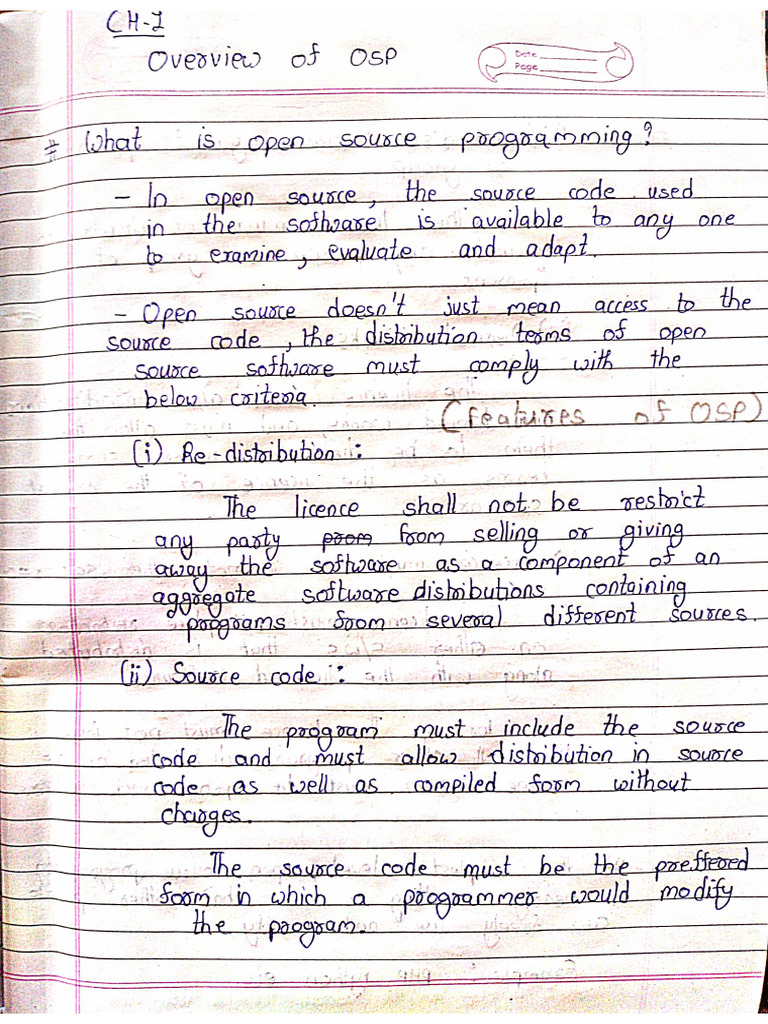 CH-1
Overview of OSP
Date
Page
# What is open source programming?
- In open source, the source code used
in the software is available to any one
to examine, evaluate and adapt.
- Open source doesn't just mean access to the
source code, the distribution terms of open
source software must comply with the
below criteria.
(features of OSP)
(i) Re-distribution:
The licence shall not be restrict
any party prom from selling or giving
away the software as a component of an
aggregate software distributions containing
programs from several different sources.
(ii) Source code:
The program must include the source
code and must allow distribution in source
code as well as compiled form without
charges.
The source code must be the preffered
form in which a programmer would modify
the program.